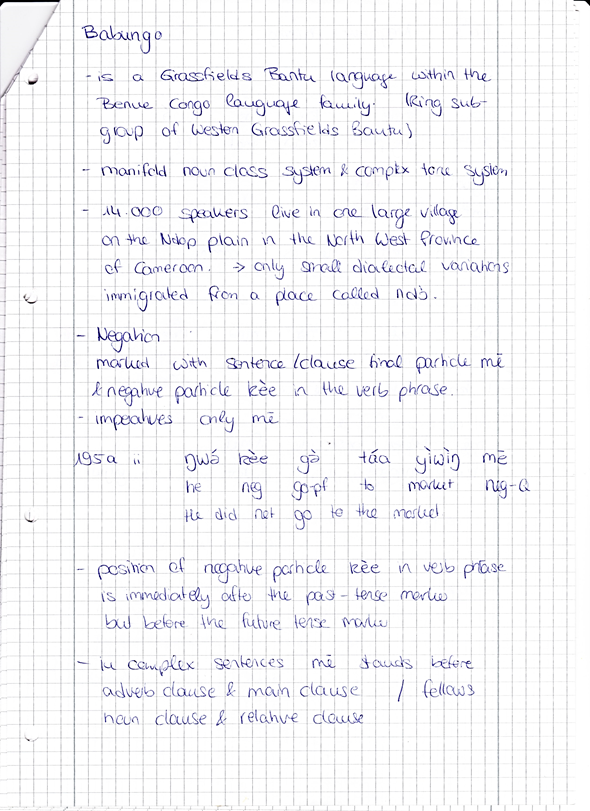 Babungo
- is a Grassfields Bantu language within the
Benue Congo language family. (Ring sub-
group of Western Grassfields Bantu)
- manifold noun class system & complex tone system
- 14.000 speakers live in one large village
on the Ndop plain in the North West Province
of Cameroon. → only small dialectal variations
immigrated from a place called ndɔ̀.
- Negation
marked with sentence/clause final particle mē
& negative particle kèe in the verb phrase.
- imperatives only mē
195a ii ŋwə́ kèe gə̀ táa yìwìŋ mē
he neg go-pf to market neg-Q
He did not go to the market
- position of negative particle kèe in verb phrase
is immediately after the past-tense marker
but before the future tense marker
- in complex sentences mē stands before
adverb clause & main clause / follows
noun clause & relative clause